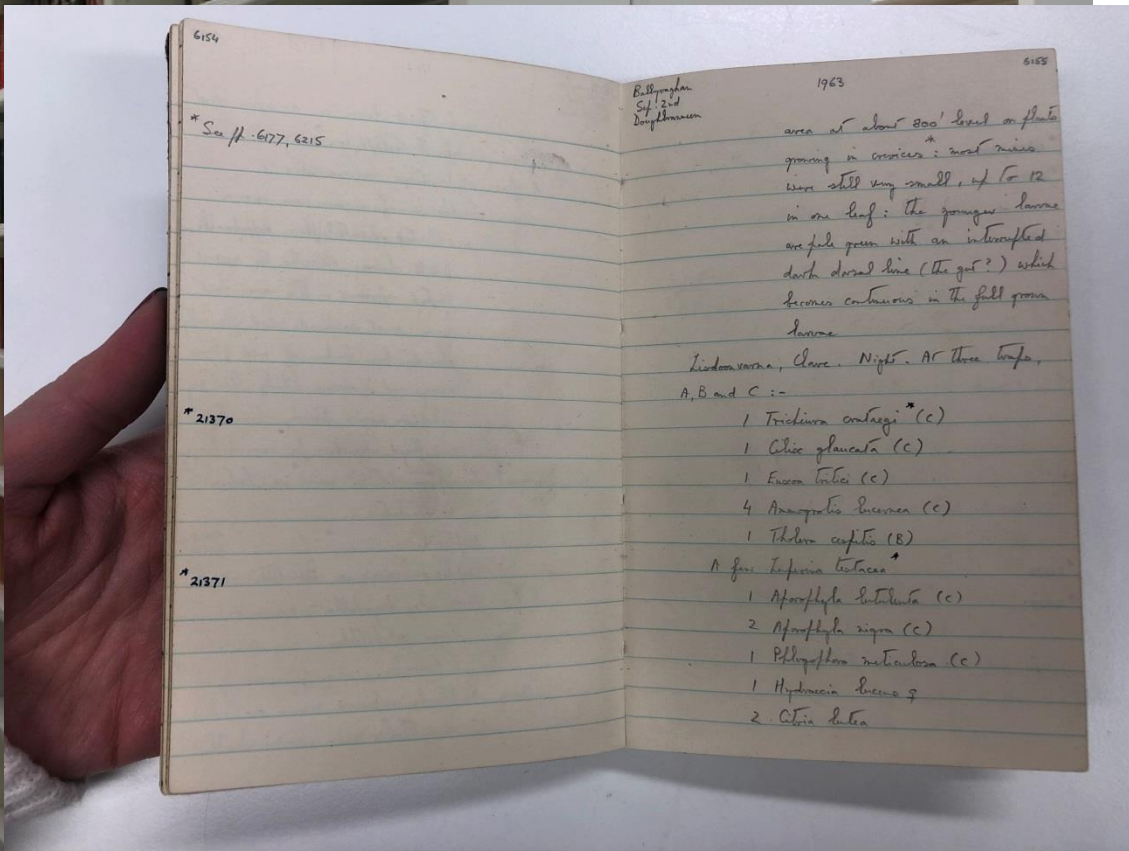 6154
* See pp. 6177, 6215
* 21370
* 21371
6155
1963
Ballyvaghan
Sep. 2nd
Doughbranneen
area at about 800' level on plants
growing in crevices*: most mines
were still very small, up to 12
in one leaf: the younger larvae
are pale green with an interrupted
dark dorsal line (the gut?) which
becomes continuous in the full grown
larvae
Lisdoonvarna, Clare. Night. At three traps,
A, B and C :-
1 Trichiura crataegi * (C)
1 Cilix glaucata (C)
1 Euxoa tritici (C)
4 Ammogrotis lucernea (C)
1 Tholera cespitis (B)
A few Luperina testacea *
1 Aporophyla lutulenta (C)
2 Aporophyla nigra (C)
1 Phlogophora meticulosa (C)
1 Hydraecia lucens ♀
2 Citria lutea